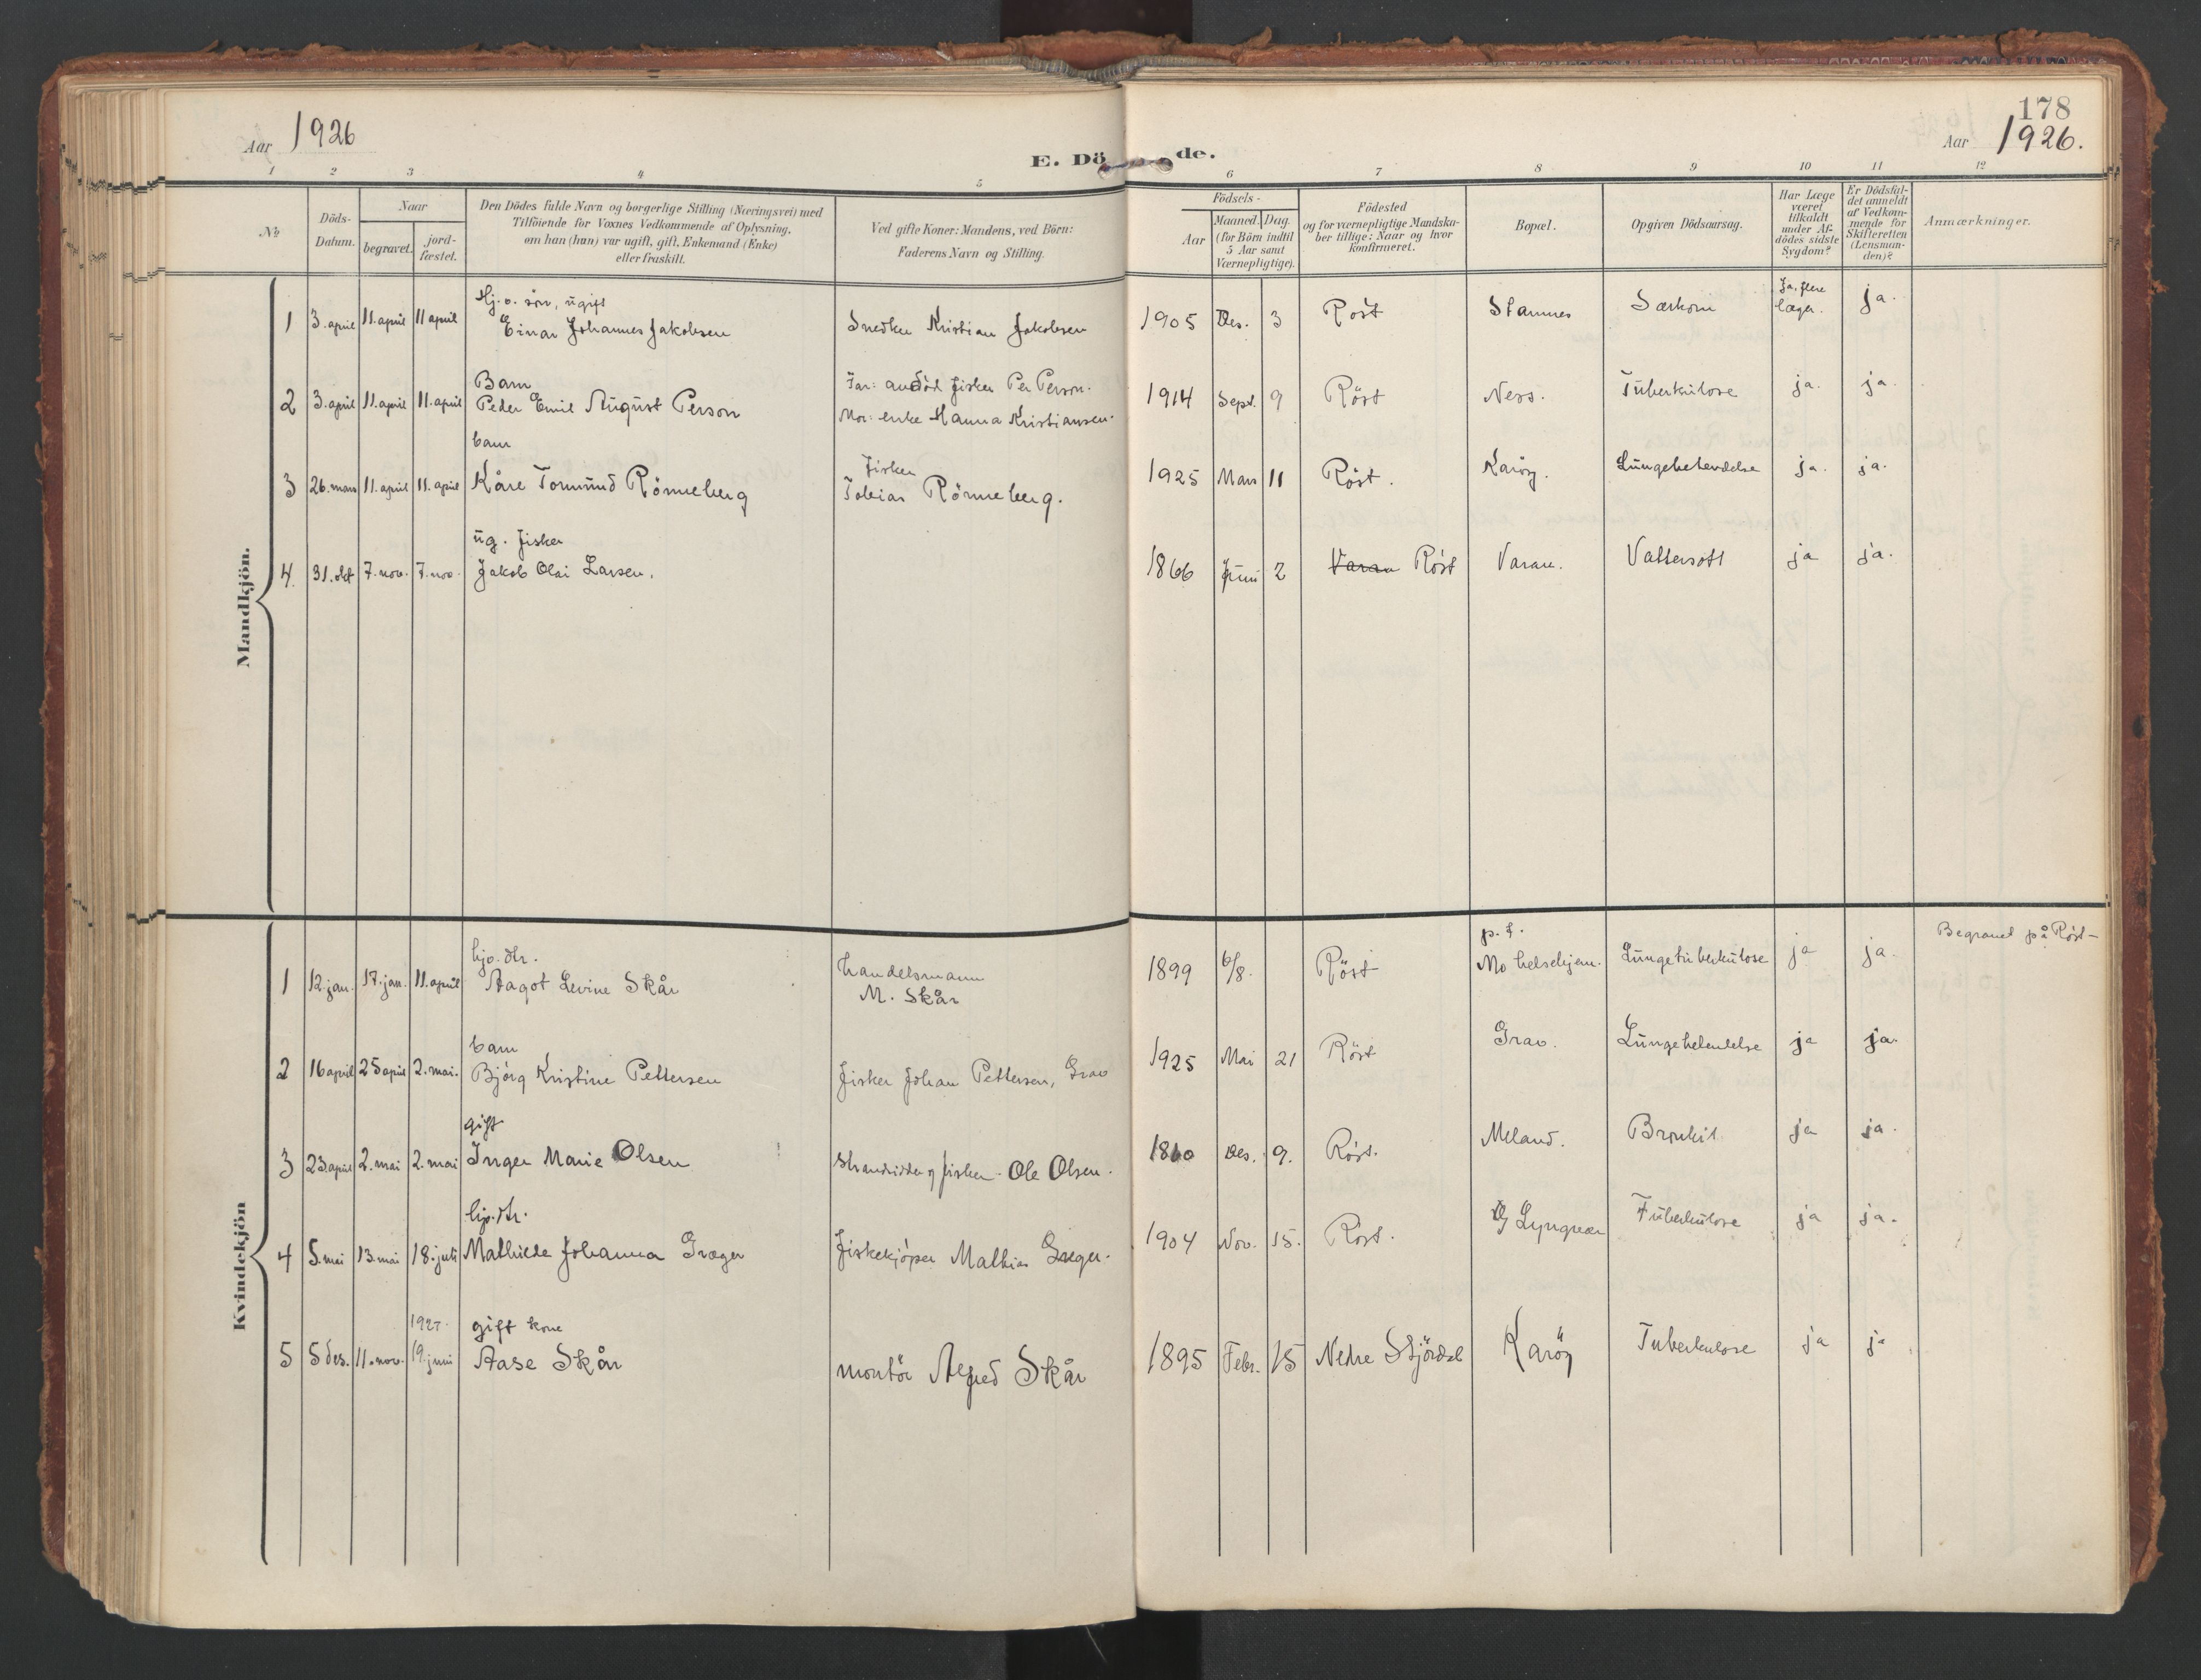 178
Aar 1926
Aar 1926.
E. Dö de.
1 2 3 4 5 6 7 8 9 10 11 12
No
Döds-
Datum.
Naar
begravet.
jord-
fæstet.
Den Dödes fulde Navn og borgerlige Stilling (Næringsvei) med
Tilföiende for Voxnes Vedkommende af Oplysning.
om han (hun) var ugift, gift, Enkemand (Enke)
eller fraskilt.
Ved gifte Koner: Mandens, ved Börn:
Faderens Navn og Stilling.
Födsels-
Aar
Maaned. Dag.
(for Börn indtil
5 Aar samt
Værnepligtige).
Födested
og for værnepligtige Mandska-
ber tillige: Naar og hvor
konfirmeret.
Bopæl.
Opgiven Dödsaarsag.
Har Læge
været
tilkaldt
under Af-
dödes sidste
Sygdom?
Er Dödsfal-
det anmeldt
af Vedkom-
mende for
Skifteretten
(Lensman-
den)?
Anmærkninger.
Mandkjön.
Hj.v. sön, ugift Ja, flere
1 3. april 11. april 11 april Einar Johannes Jakobsen Snedker Kristian Jakobsen 1905 Des. 3 Röst Stamnes Sarkom læger. ja.
Barn Far: andöd fisker Per Person.
2 3. april 11. april 11. april Peder Emil August Person Mor: enke Hanna Kristiansen. 1914 Sept. 9 Röst Ness. Tuberkulose ja. ja.
barn Fisker
3 26. mars 11. april 11. april Kåre Tormund Rönneberg Tobias Rönneberg. 1925 Mars 11 Röst. Karöy. Lungebetendelse ja. ja.
ug. fisker
4. 31. okt 7. nov. 7. nov. Jakob Olai Larsen. 1866 Juni 2 Varan Röst Varan. Vattersott ja ja.
Kvindekjön
hjv. dtr. p. t. Begravet på Röst-
1 12. jan. 17. jan. 11. april Aagot Levine Skår handelsmann M. Skår 1899 6/8. Röst Mo helsehjem. Lungetuberkulose ja ja.
barn
2 16 april 25 april 2. mai. Bjórg Kristine Pettersen fisker Johan Pettersen, Grav 1925 Mai 21 Röst Grav. Lungebetendelse ja ja.
gift
3 23. april 2. mai 2. mai Inger Marie Olsen strandsidder og fisker Ole Olsen. 1860 Des. 9. Röst. Meland. Bronkit. ja ja.
hjv. dtr.
4 5. mai 13. mai 18. juli Mathilde Johanna Græger fiskekjóper Mathias Græger. 1904 Nov. 15. Röst. Lyngvær Tuberkulose ja ja.
1927. gift kone
5 5 des. 11. nov. 19. juni Aase Skår montör Alfred Skår 1895 Febr. 15 Nedre Stjördal Karöy Tuberkulose ja ja